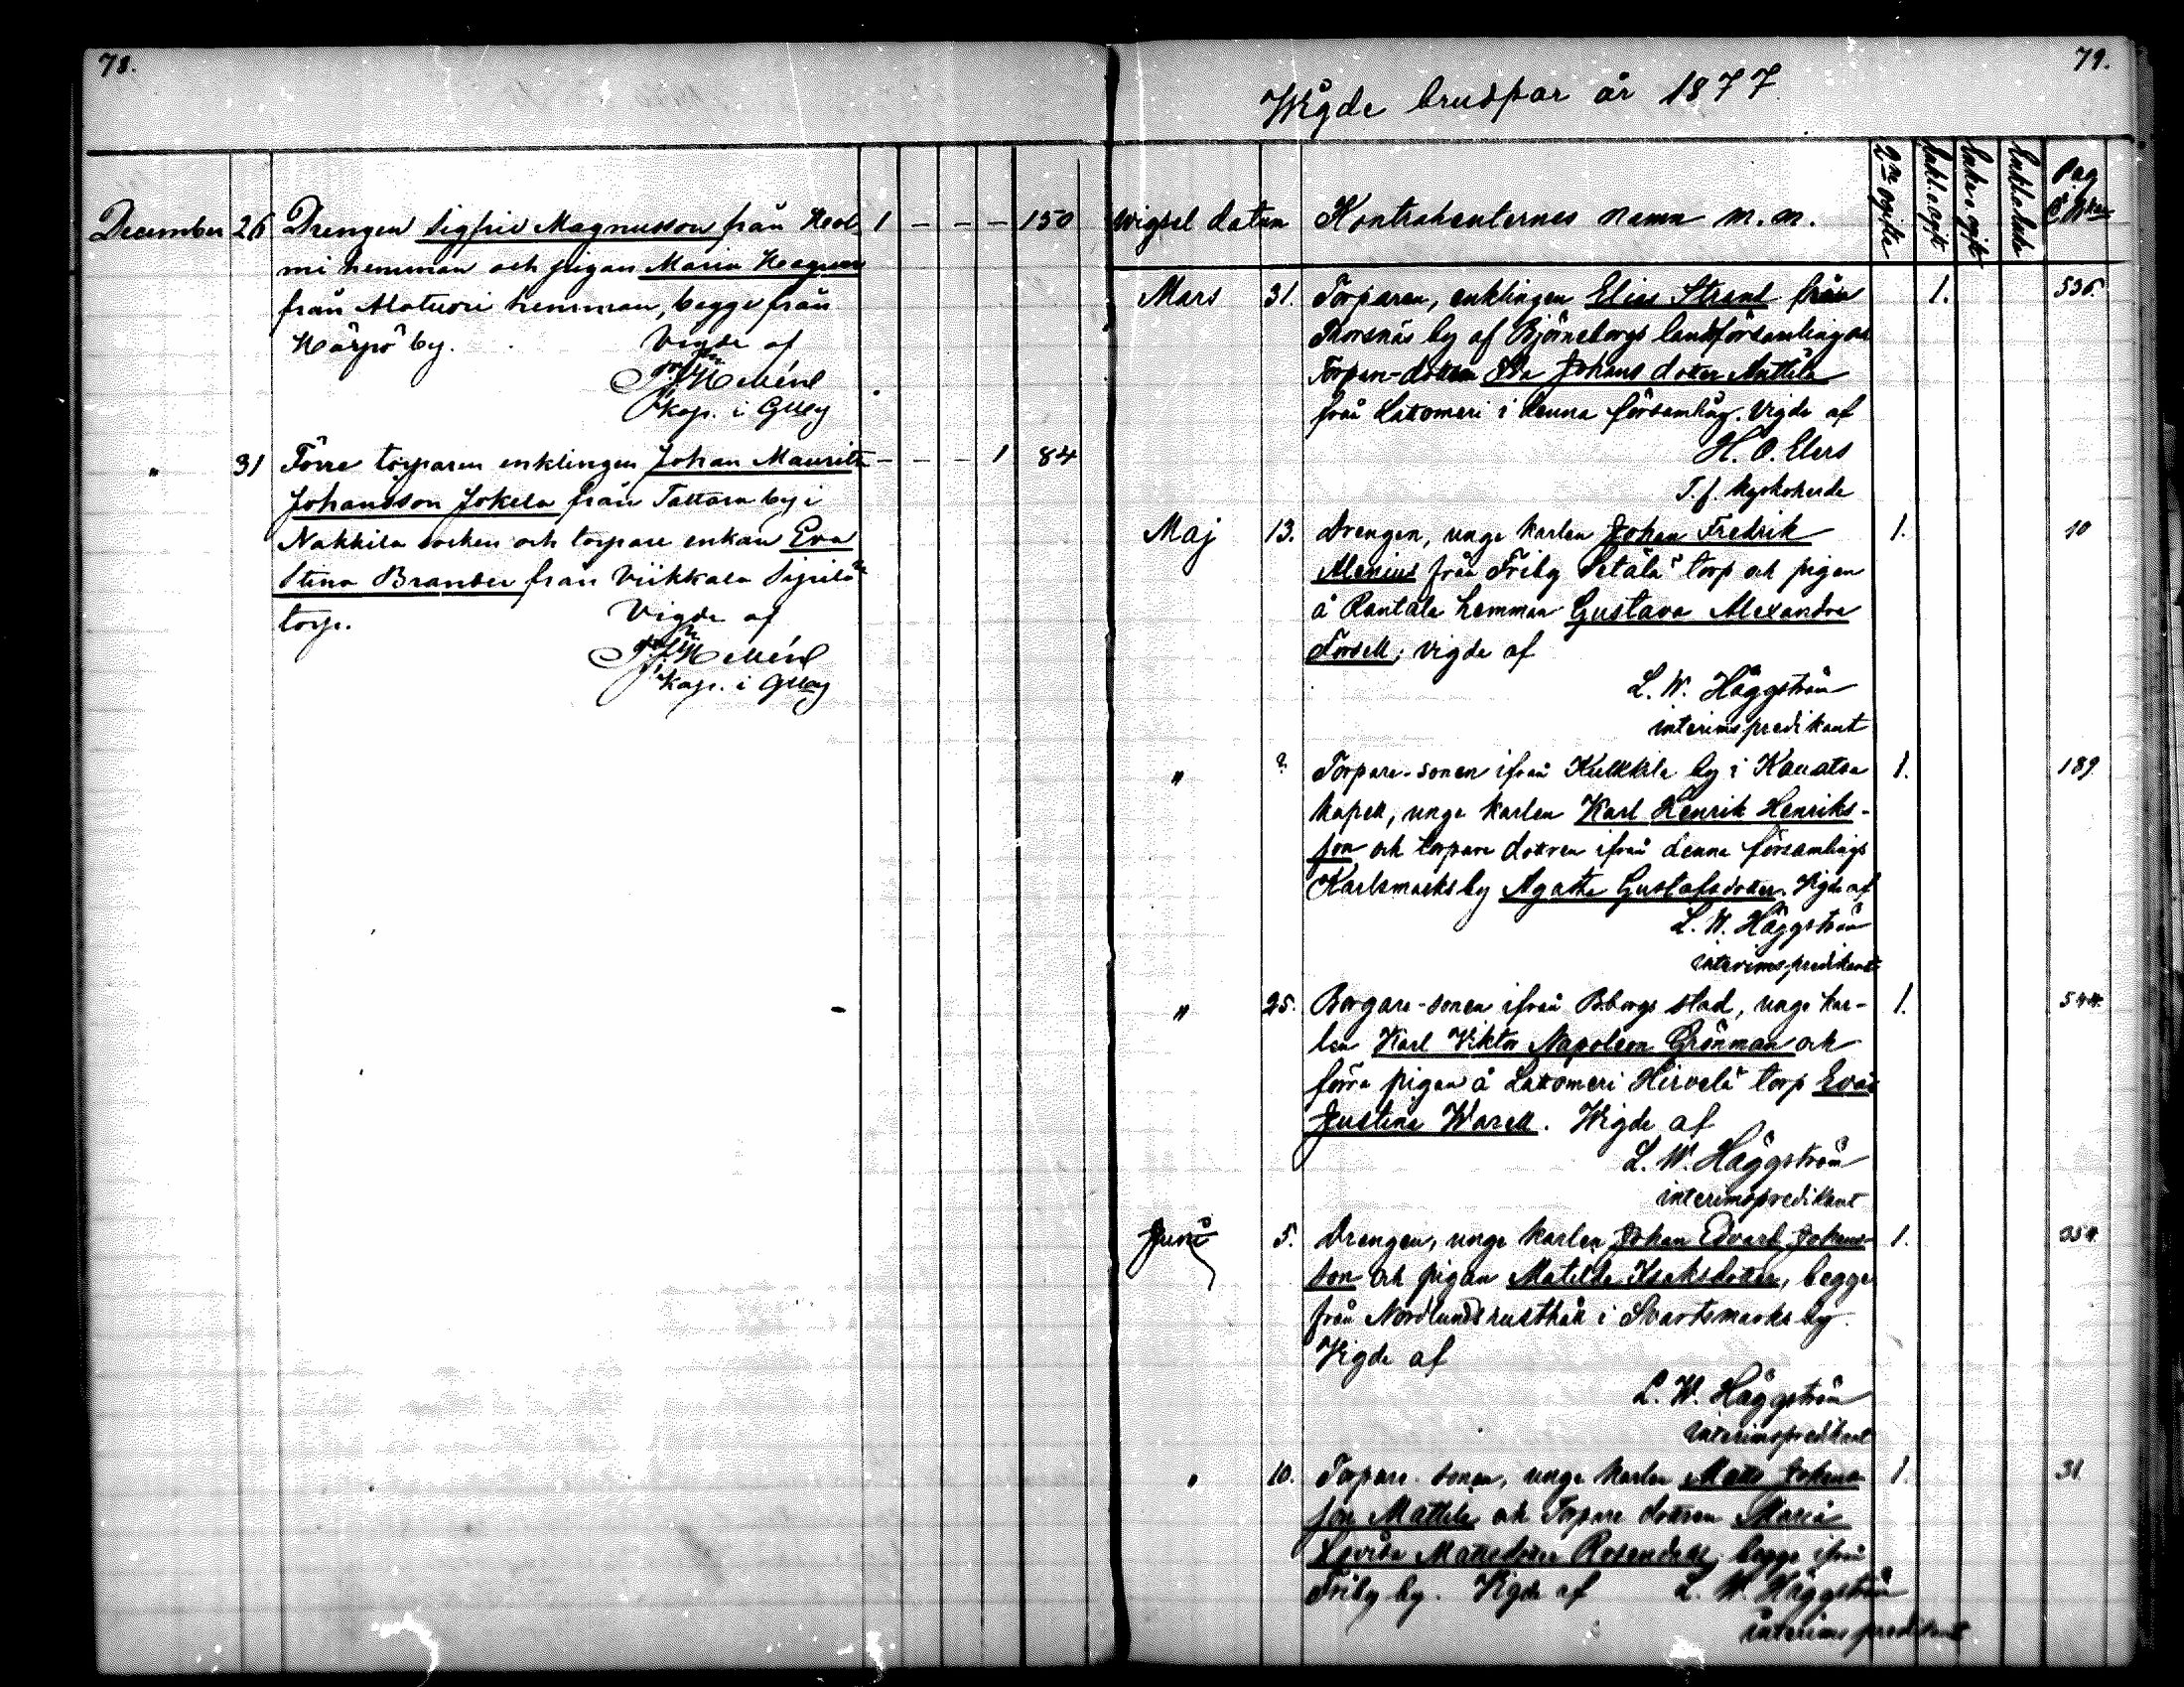 78.
December 26 Drengen Sigfrid Magnusson från Hol- 1 – – – 150
mi hemman och pigan Maria
från hemman, begge från
by. Vigde af
kap. i Gllby
" 31 Förre torparen enklingen Johan Mauritz – – – 1 84
Johansson Jokela från Tattara by i
Nakkila socken och torpare enkan Eva
Stina Brander från Viikkala
torp. Vigde af
kap. i Gllby
79.
Wigde brudpar år 1877
Wigsel datum Kontrahenternes namn m.m. 2ne ogifta Enkl. o. ogift Enka o. ogift Enkl. o. enka Pag.
Mars 31. Torparen, enklingen Elias Strand från 1. 536.
Thorsnäs by af Björneborgs landsförsamling och
Torpare-dottren Eva Johans dotter Anttila
från Lattomeri i denna församling. Vigde af
H. O. Elers
T. f. kyrkoherde
Maj 13. Drengen, unge karlen Johan Fredrik 1. 10
Alenius från Friby Setälä torp och pigan
å Rantala hemman Gustava Alexandra
Forsell; vigde af
L. W. Häggström
interimspredikant
" ? Torpare-sonen ifrån Kukkila by i Kauvatsa 1. 189
kapell, unge karlen Karl Henrik Henriks-
son och torpare dottren ifrån denna församlings
Karlsmarks by Agatha Gustafsdotter. Vigde af
L. W. Häggström
interimspredikant
" 25. Borgare-sonen ifrån B:borgs stad, unge kar- 1. 544
len Karl Viktor Napoleon Grönman och
förra pigan å Lattomeri Hirvelä torp Eva
Justina Warell. Wigde af
L. W. Häggström
interimspredikant
Juni 5. Drengen, unge karlen Johan Edvard Johans- 1. 354
son och pigan Matilda Isaksdotter, begge
från Nordlunds rusthåll i Svartsmarks by.
Vigde af
L. W. Häggström
interimspredikant
" 10. Torpare sonen, unge karlen Matts Johans- 1. 31
son Mattila och Torpare dottren Maria
Lovisa Mattsdotter Rosendahl, begge ifrån
Friby by. Vigde af L. W. Häggström
interimspredikant